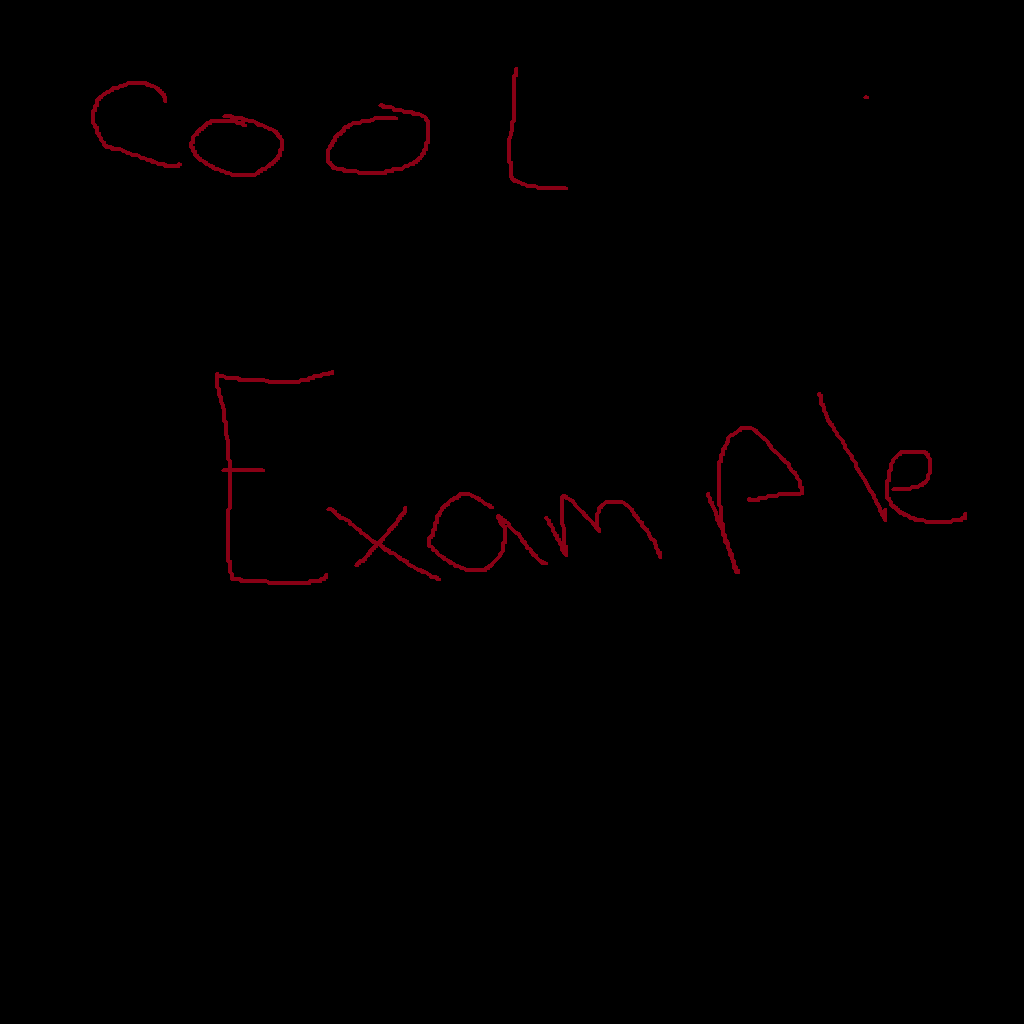 Cool
Example